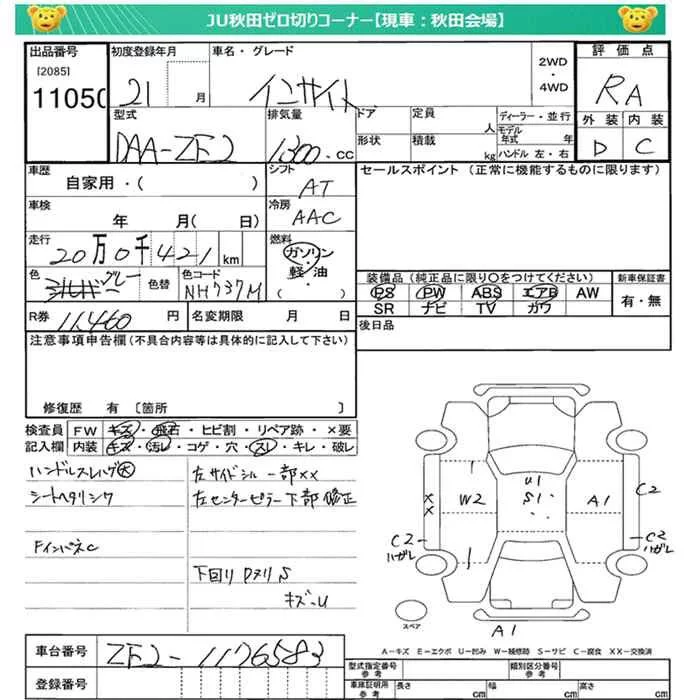 JU秋田ゼロ切りコーナー【現車：秋田会場】
出品番号 初度登録年月 車名・グレード 2WD・4WD 評価点
[2085]
11050 21 月 インサイト RA
型式 排気量 ドア 定員 人 ディーラー・並行 外装 内装
DAA-ZF2 1300 cc 形状 積載 kg モデル年式 年 ハンドル 左・右 D C
車歴 シフト セールスポイント（正常に機能するものに限ります）
自家用・（ ） AT
車検 冷房
年 月（ 日） AAC
走行 燃料
20万0千421km ガソリン・軽油・（ ）
色 色替 色コード 装備品（純正品に限り○をつけてください） 新車保証書
グレー NH737M PS PW ABS エアB AW 有・無
SR ナビ TV カワ
R券 11,460 円 名変期限 月 日 後日品
注意事項申告欄（不具合内容等は具体的に記入して下さい）
修復歴 有〔箇所 〕
検査員 FW キズ・飛石・ヒビ割・リペア跡・×要
記入欄 内装 キズ・汚レ・コゲ・穴・スレ・キレ・破レ
ハンドルスレハゲ大 左サイドシル一部××
シートヘタリシワ 左センターピラー下部修正
Fインパネc
下回りPヌリS
キズ〜U
U1
S1
W2 A1 C2
××
C2 ハガレ C2 ハガレ
スペア A1
A－キズ E－エクボ U－凹み W－補修跡 S－サビ C－腐食 ××－交換済
車台番号 ZF2-1176583 型式指定番号 参考 類別区分番号 参考
登録番号 車庫証明用 参考 長さ cm 幅 cm 高さ cm